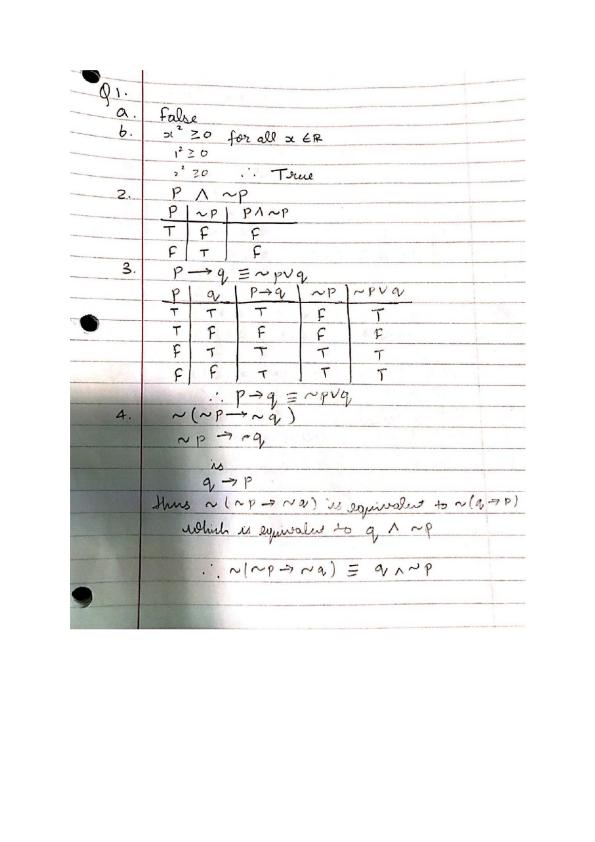 Q1.
a. false
b. x² ≥0 for all x ∈R
1² ≥ 0
2² ≥0 ∴ True
2. P ∧ ~p
P | ~P | P∧~P
T | F | F
F | T | F
3. P → q ≡ ~p∨q
P | q | P→q | ~P | ~P∨q
T | T | T | F | T
T | F | F | F | F
F | T | T | T | T
F | F | T | T | T
∴ p→q ≡ ~p∨q
4. ~(~p→~q)
~p → ~q
is
q → p
thus ~(~p→~q) is equivalent to ~(q→p)
which is equivalent to q ∧ ~p
∴ ~(~p→~q) ≡ q ∧ ~p